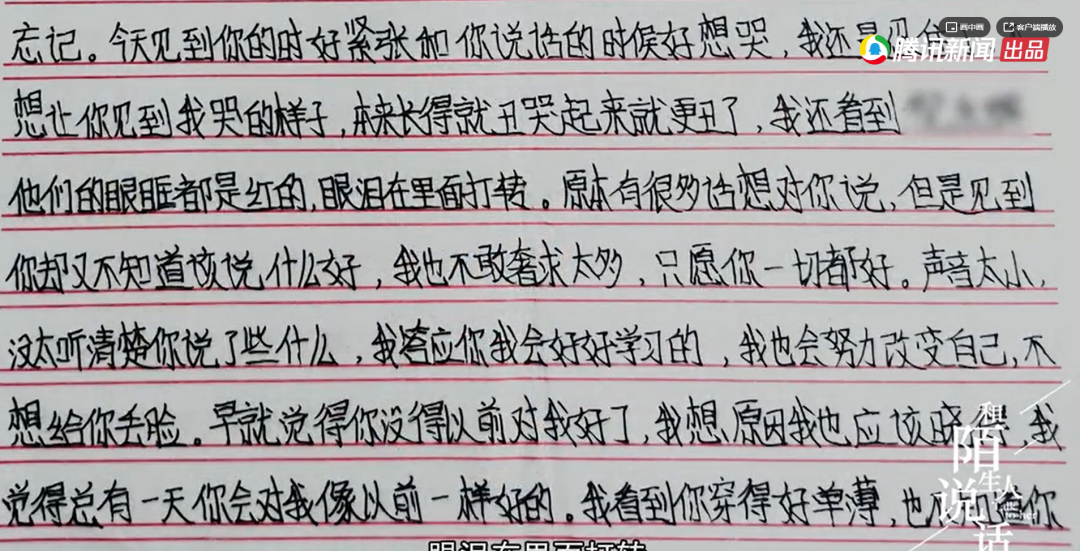 画中画 客户端播放
腾讯新闻 出品
忘记。今天见到你的时好紧张和你说话的时候好想哭，我还是
想让你见到我哭的样子，本来长得就丑哭起来就更丑了，我还看到
他们的眼眶都是红的，眼泪在里面打转。原本有很多话想对你说，但是见到
你却又不知道该说什么好，我也不敢奢求太多，只愿你一切都好。声音太小，
没太听清楚你说了些什么，我答应你我会好好学习的，我也会努力改变自己，不
想给你丢脸。早就觉得你没得以前对我好了，我想原因我也应该晓得，我
觉得总有一天你会对我像以前一样好的。我看到你穿得好单薄，也 你
和陌生人说话